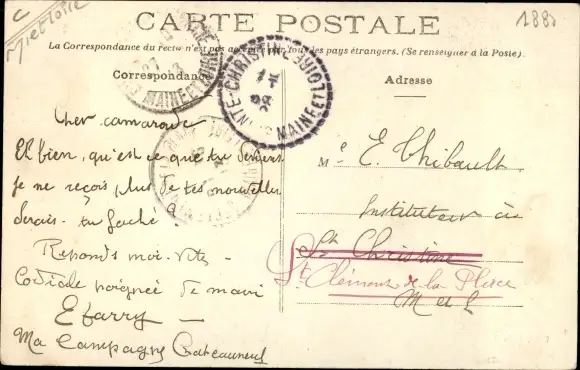 M et Loire
1880
CARTE POSTALE
La Correspondance du recto n'est pas acceptée par tous les pays étrangers. (Se renseigner à la Poste).
Correspondance
Adresse
SAINTE-CHRISTINE
MAINE ET LOIRE
MAINE ET LOIRE
Cher camarade
Eh bien, qu'est ce que tu deviens
je ne reçois plus de tes nouvelles
serais-tu faché ?
Réponds moi vite -
Cordiale poignée de main
E farry —
Ma Campagne Chateauneuf
Me E. Thibault
Instituteur à
Ste Christine
St Clément de la Place
M et L